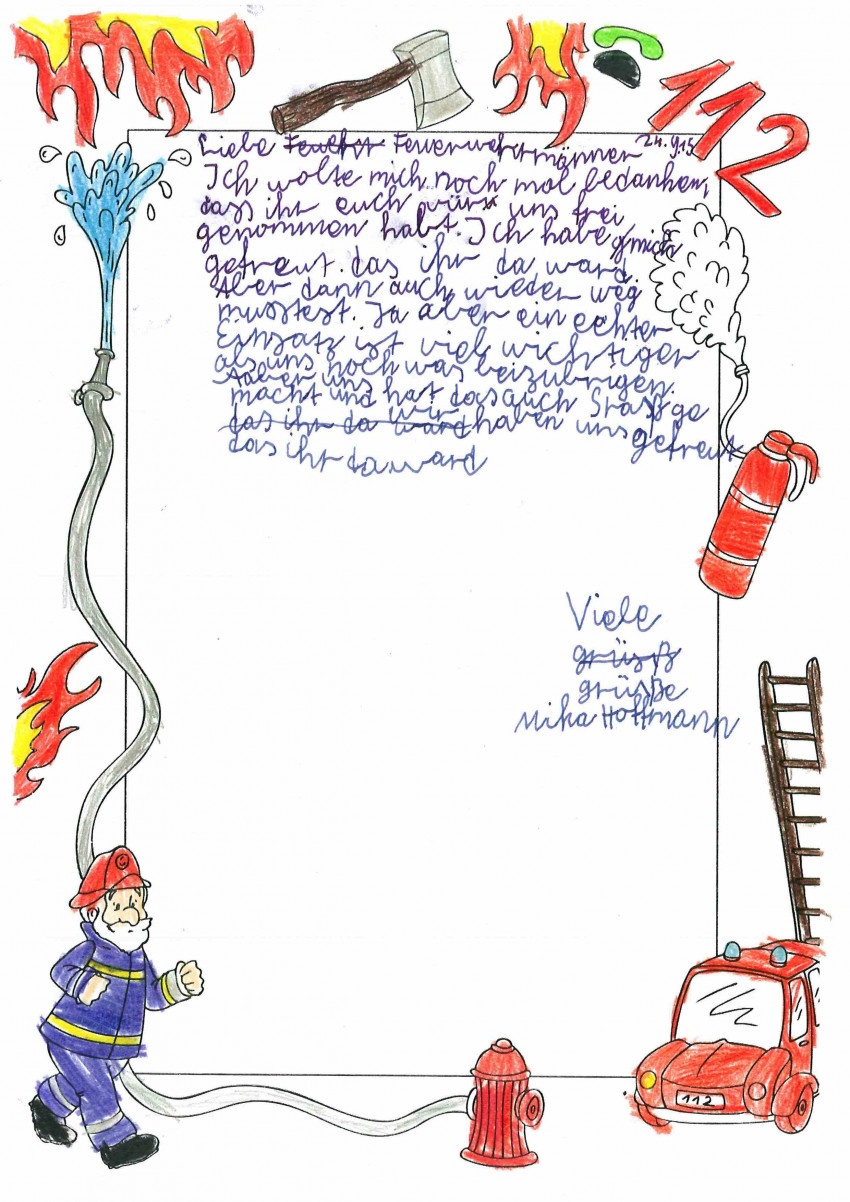 112
Liebe Feuehr Feuerwehrmänner 24.9.15
Ich wolte mich noch mol bedanken,
dass ihr euch vür uns frei
genommen habt. Ich habe mich
gefreut. das ihr da ward.
Aber dann auch wieder weg
musstest. Ja aber ein echter
Einsatz ist viel wichtiger
als uns noch was beizubrigen.
Aaber uns
macht und hat das auch Spaß ge
das ihr da ward wir haben uns gefreut
das ihr da ward
Viele
grüsß
grüße
Mika Hoffmann
112